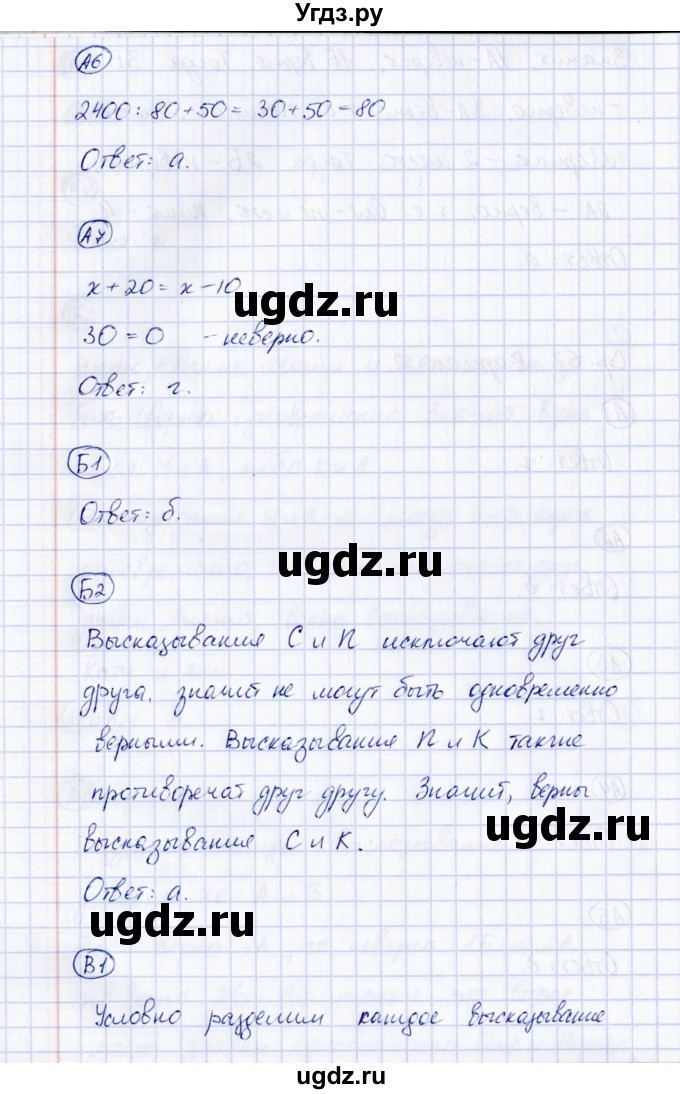 Угдз.ру
А6
2400 : 80 + 50 = 30 + 50 = 80
Ответ: а.
А7
x + 20 = x - 10
ugdz.ru
30 = 0 - неверно.
Ответ: г.
Б1
Ответ: б.
ugdz.ru
Б2
Высказывания С и П исключают друг
друга, значит не могут быть одновременно
верными. Высказывания П и К также
противоречат друг другу. Значит, верны
ugdz.ru
высказывания С и К.
Ответ: а.
ugdz.ru
В1
Условно разделим каждое высказывание
ugdz.ru